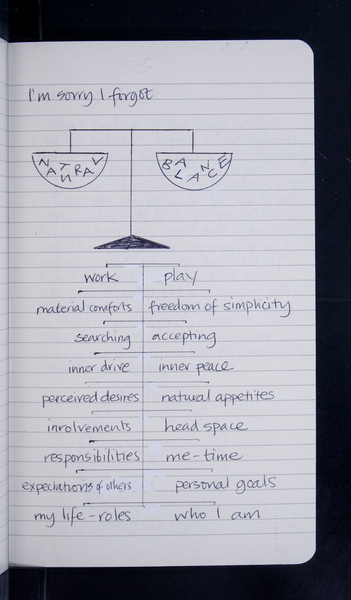 I'm sorry I forgot
NATURAL BALANCE
work play
material comforts freedom of simplicity
searching accepting
inner drive inner peace
perceived desires natural appetites
involvements head space
responsibilities me-time
expectations of others personal goals
my life-roles who I am